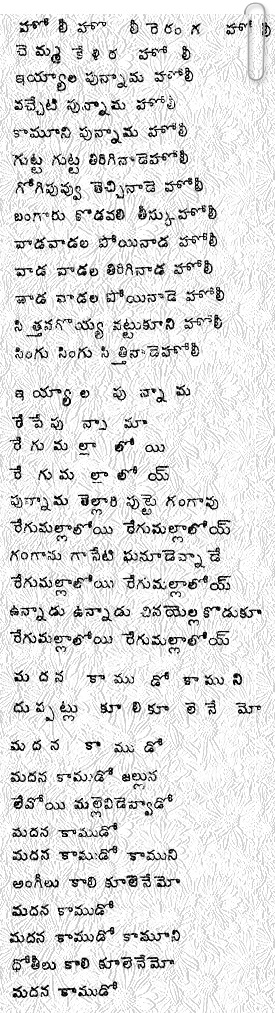 హోలీ హోలీ రెరంగ హోలీ
చెమ్మ కేళిర హోలీ
ఇయ్యాల పున్నామ హోలీ
వచ్చేటి పున్నామ హోలీ
కామూని పున్నామ హోలీ
గుట్ట గుట్ట తిరిగినాడెహోలీ
గోగిపువ్వు తెచ్చినాడె హోలీ
బంగారు కొడవలి తీస్కుహోలీ
వాడవాడల పోయినాడ హోలీ
వాడ వాడల తిరిగినాడ హోలీ
వాడ వాడల పోయినాడె హోలీ
సిత్తవగొయ్య వట్టుకూని హోలీ
సింగు సింగు సిత్తినాడెహోలీ
ఇయ్యాల పున్నామ
రేపేపున్నామా
రేగుమల్లాలోయి
రేగుమల్లాలోయ్
పున్నామ తెల్లారి పుట్టె గంగావు
రేగుమల్లాలోయి రేగుమల్లాలోయ్
గంగాను గాసేటి ఘనూడెవ్వాడే
రేగుమల్లాలోయి రేగుమల్లాలోయ్
ఉన్నాడు ఉన్నాడు చినయెల్లకొడుకూ
రేగుమల్లాలోయి రేగుమల్లాలోయ్
మదన కాముడో కాముని
దుప్పట్లు కూలికూలెనేమో
మదన కాముడో
మదన కాముడో జల్లున
లేవోయి మల్లెవిడెవ్వాడో
మదన కాముడో
మదన కాముడో కాముని
అంగీలు కాలి కూలెనేమో
మదన కాముడో
మదన కాముడో కామూని
ధోతీలు కాలి కూలెనేమో
మదన కాముడో